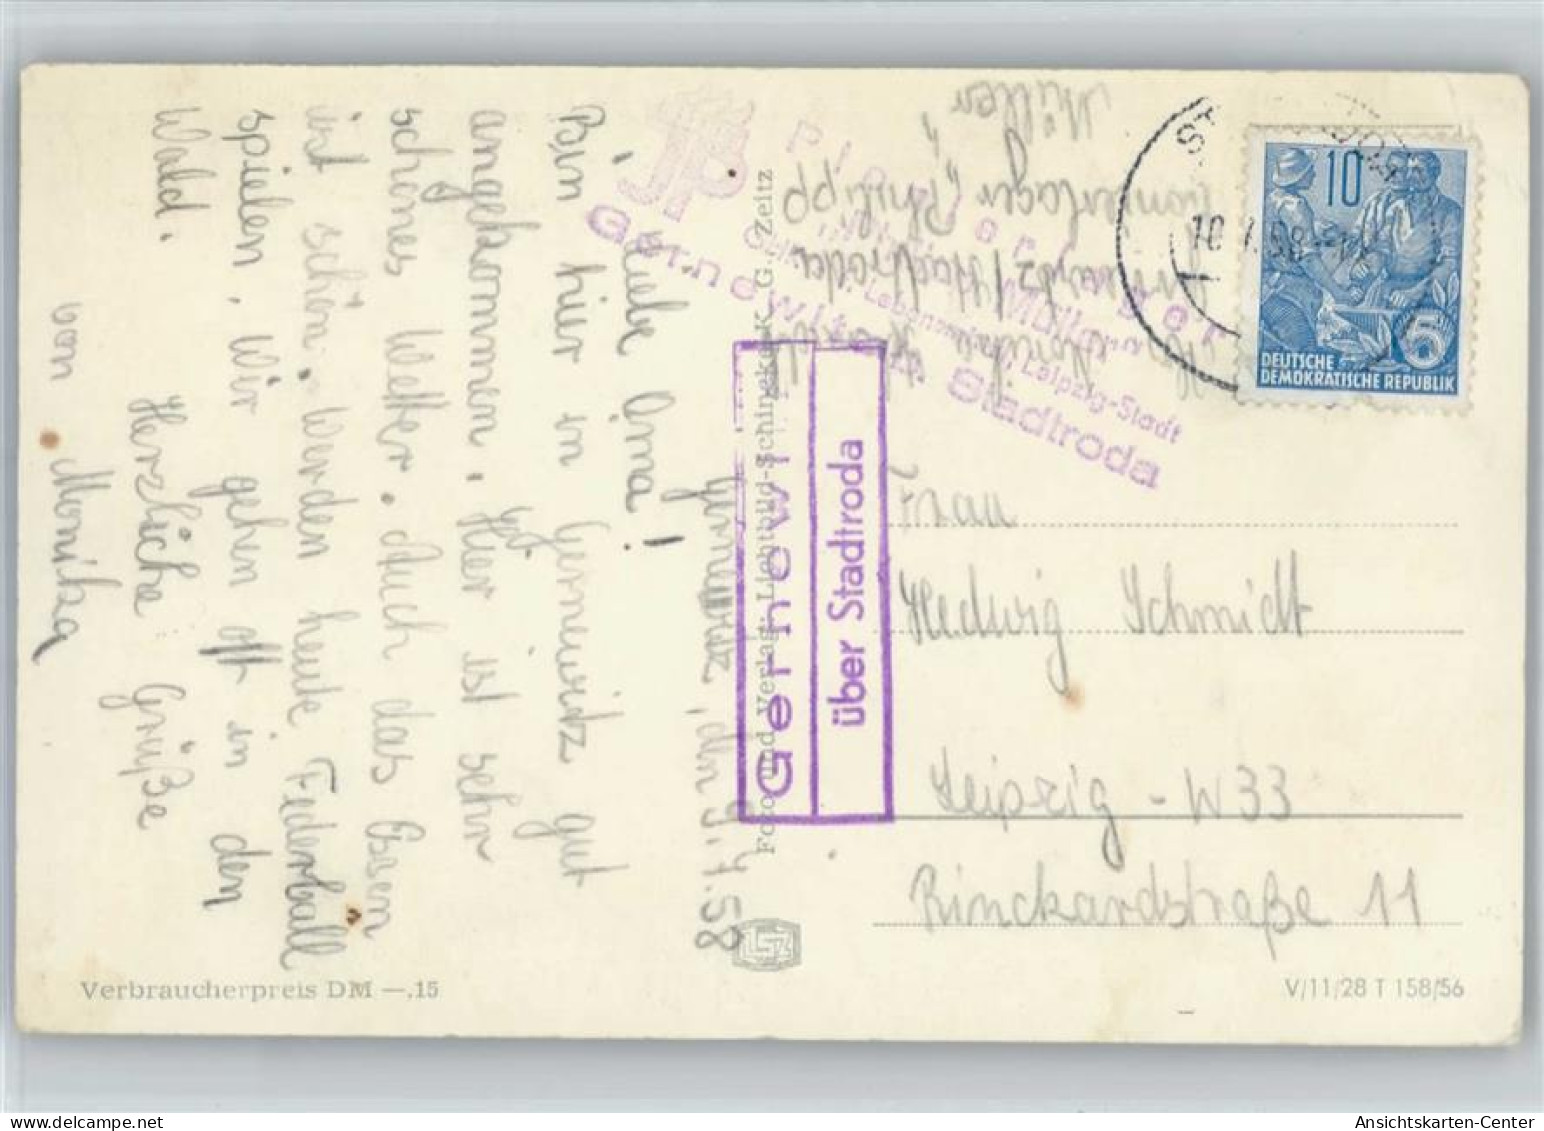 Gernewitz, den 9.7.58
Liebe Oma!
Bin hier in Gernewitz gut
angekommen. Hier ist sehr
schönes Wetter. Auch das Essen
ist schön. Werden heute Federball
spielen. Wir gehen oft in den
Wald.
Herzliche Grüße
von Monika
Verbraucherpreis DM —.15
Foto und Verlag: Lichtbild-Schincke K. G. Zeitz
Pionierlager
Philipp Müller
Lebensmittel Leipzig-Stadt
Gernewitz Stadtroda
Gernewi
über Stadtroda
Stadtroda
Philipp
Müller"
10
DEUTSCHE
DEMOKRATISCHE REPUBLIK
5
Frau
Hedwig Schmidt
Leipzig - W33
Rinckardstraße 11
V/11/28 T 158/56
Ansichtskarten-Center